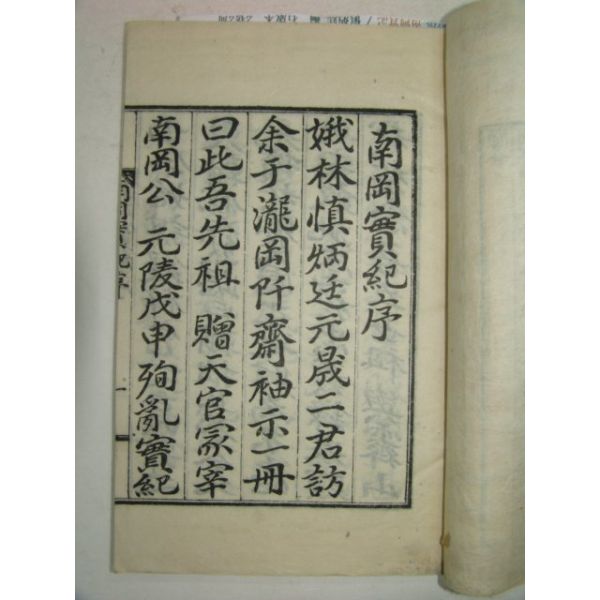 南岡實紀序
娥林慎炳廷元晟二君訪
余于瀧岡阡齋袖示一冊
曰此吾先祖 贈天官冢宰
南岡公 元陵戊申殉亂實紀
南岡實紀序
一